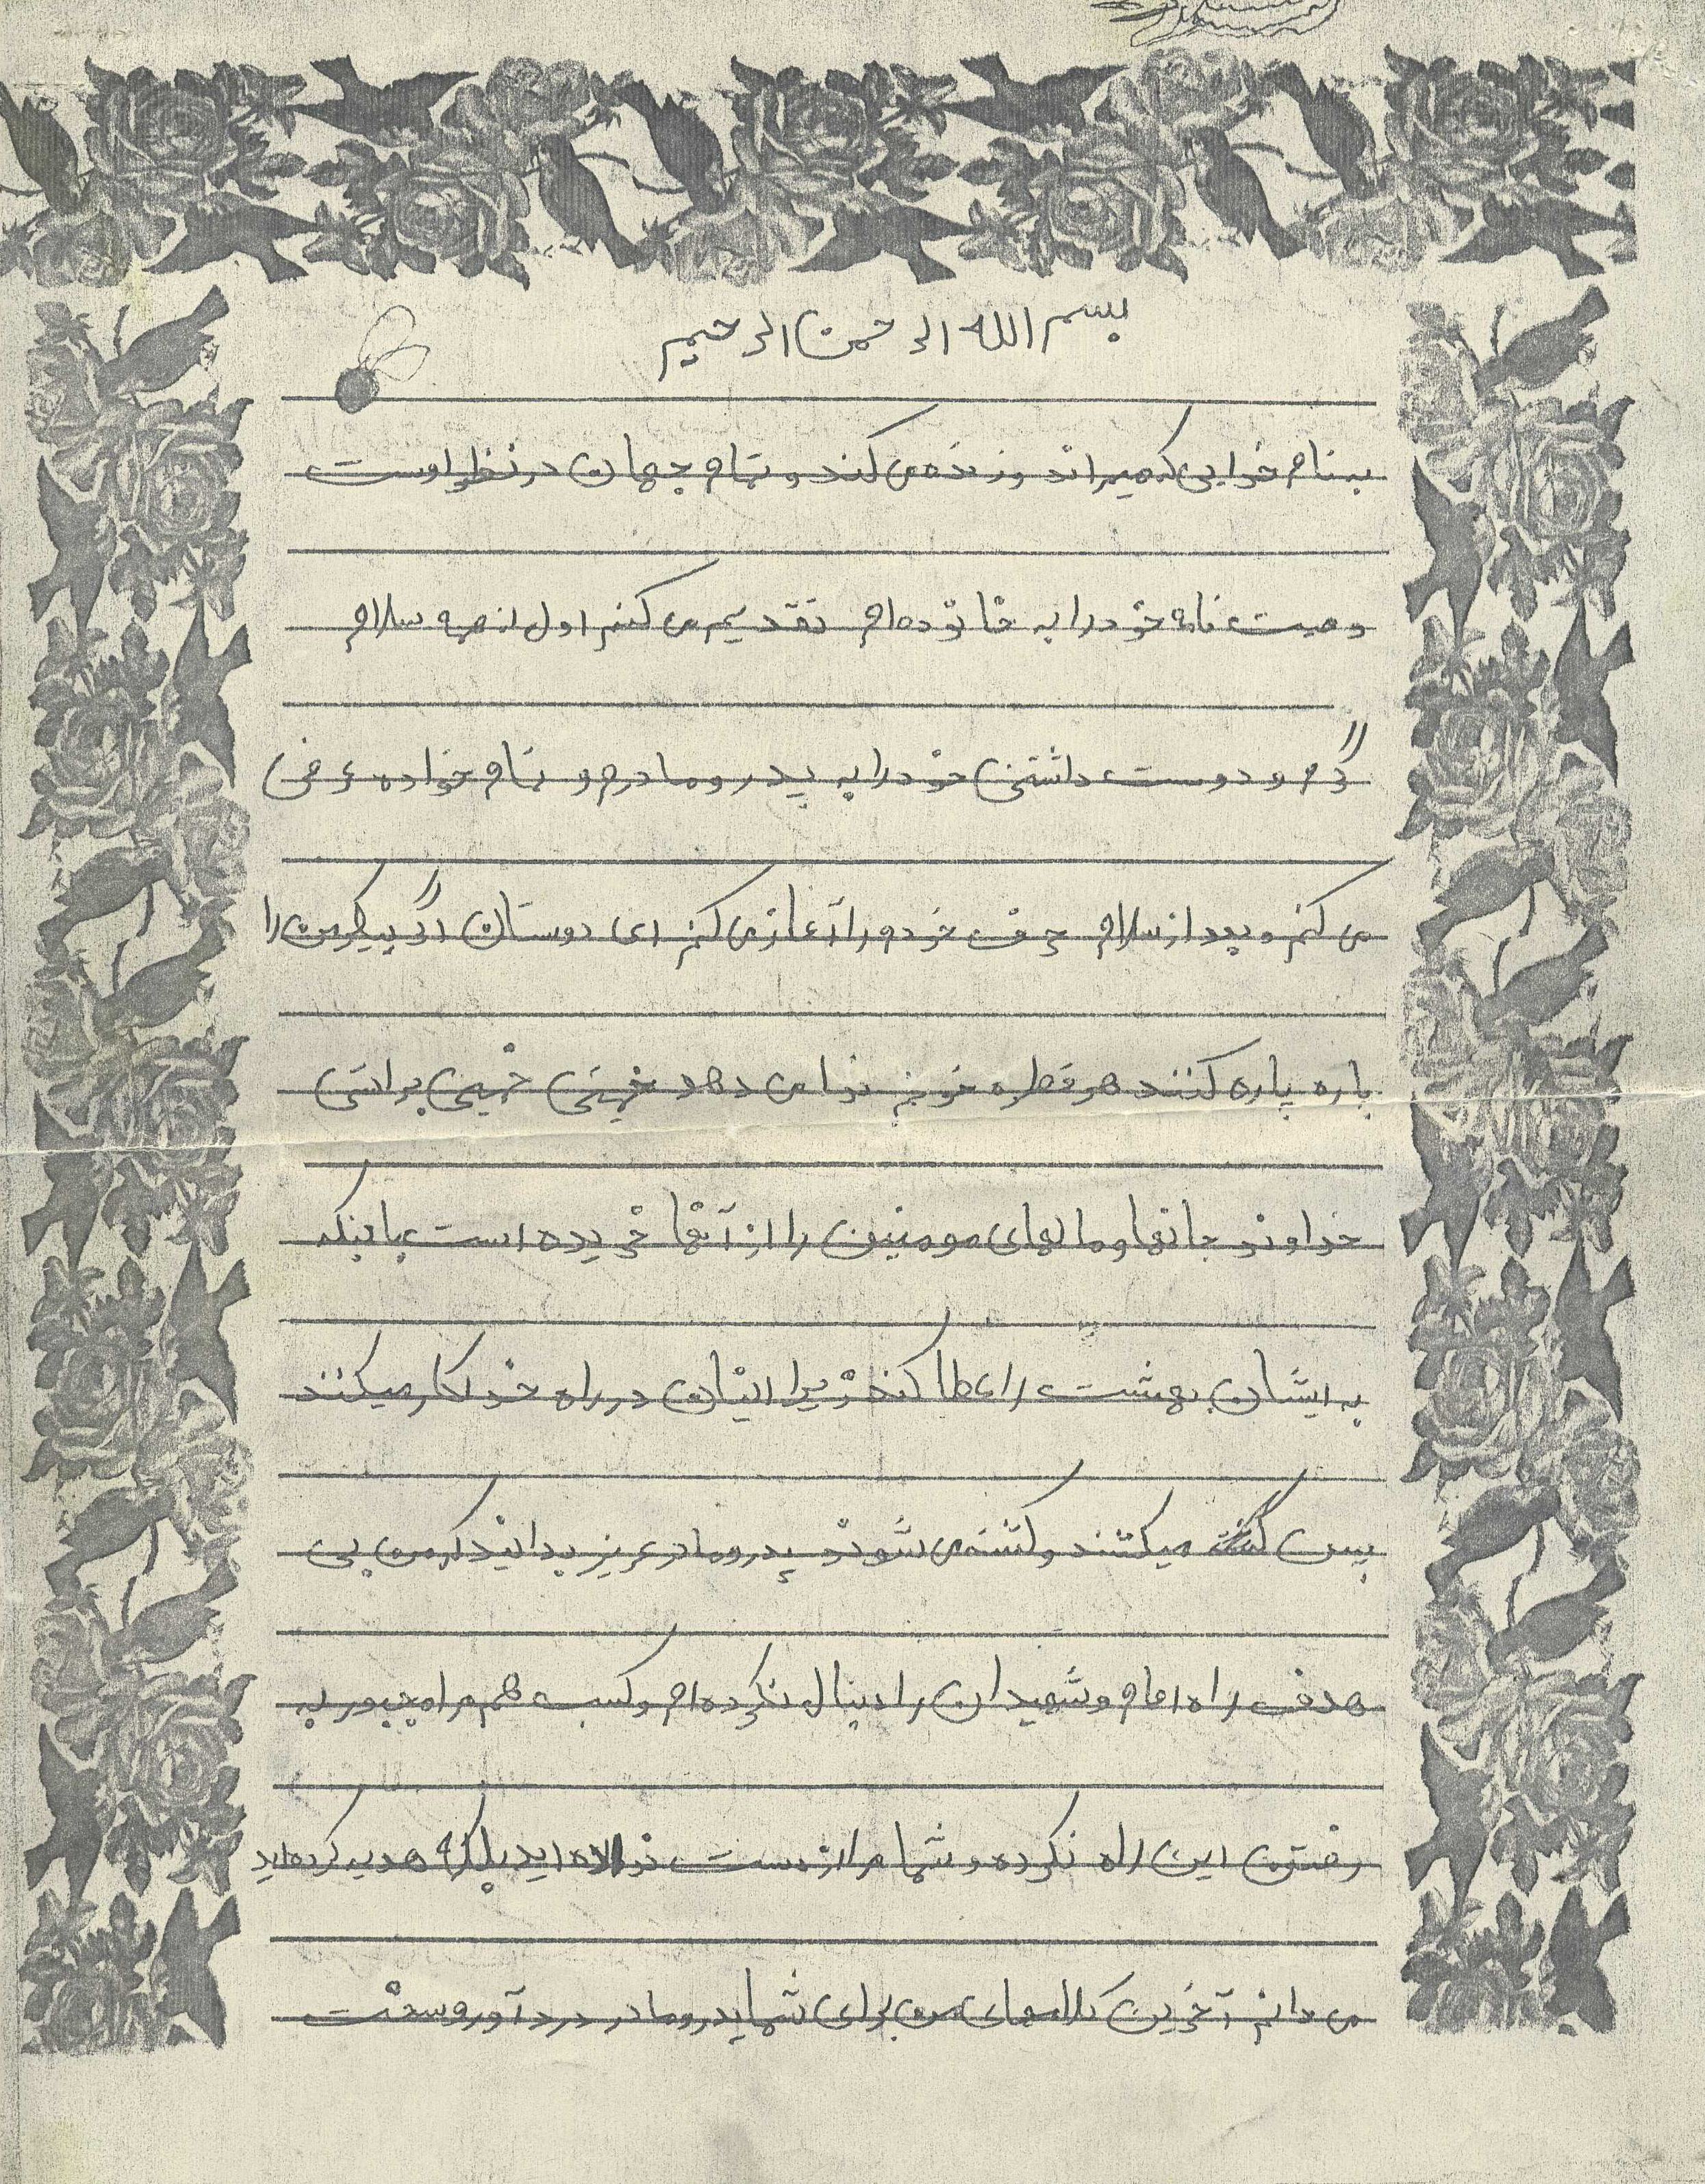 بسم الله الرحمن الرحیم
به نام خدایی که میراند و زنده می کند و تمام جهان در نظر اوست
وصیت نامه خود را به خانوده ام تقدیم می کنم اول از همه سلام
گرم و دوست داشتنی خود را به پدر و مادرم و تمام خواده عرض
می کنم و بعد از سلام حرف خودم را آغاز می کنم ای دوستان اگر پیکر من را
پاره پاره کنند هر قطره خونم ندا می دهد خمینی خمینی
خداوند جانها و مالهای مومنین را از آنها خریده است با اینکه
به ایشان بهشت را عطا کند زیرا ایشان در راه خدا کار میکنند
پس میکشند و کشته می شوند پدر و مادر عزیز بدانید که من بی
هدف راه امام و شهیدان را دنبال نکرده ام و کسی هم مرا مجبور به
رفتن این راه نکرده و شما مرا از دست نداده اید بلکه هدیه کرده اید
می دانم آخرین کلامهای من برای شما پدر و مادر درد آور و سخت